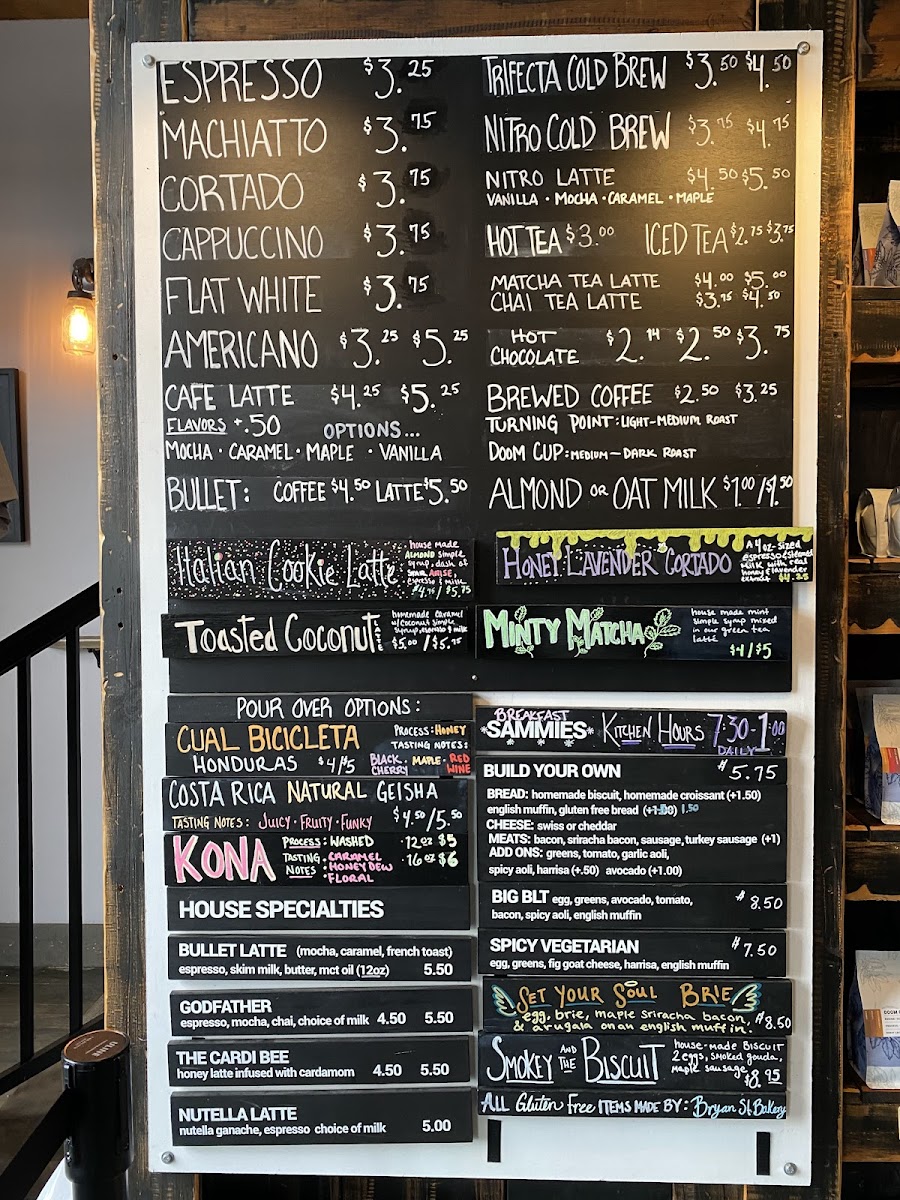 ESPRESSO $3.25
MACHIATTO $3.75
CORTADO $3.75
CAPPUCCINO $3.75
FLAT WHITE $3.75
AMERICANO $3.25 $5.25
CAFE LATTE $4.25 $5.25
FLAVORS +.50 OPTIONS...
MOCHA · CARAMEL · MAPLE · VANILLA
BULLET: COFFEE $4.50 LATTE $5.50
TRIFECTA COLD BREW $3.50 $4.50
NITRO COLD BREW $3.75 $4.75
NITRO LATTE $4.50 $5.50
VANILLA · MOCHA · CARAMEL · MAPLE
HOT TEA $3.00 ICED TEA $2.75 $3.75
MATCHA TEA LATTE $4.00 $5.00
CHAI TEA LATTE $3.75 $4.50
HOT
CHOCOLATE $2.14 $2.50 $3.75
BREWED COFFEE $2.50 $3.25
TURNING POINT: LIGHT-MEDIUM ROAST
DOOM CUP: MEDIUM-DARK ROAST
ALMOND OR OAT MILK $1.00/$1.50
Italian Cookie Latte
house made
ALMOND simple
syrup, dash of
ARISE
espresso & milk
$4.75/$5.75
HONEY LAVENDER CORTADO
A 4oz-sized
espresso & steamed
milk with real
honey & lavender
extract $4.25
Toasted Coconut LATTE
homemade caramel
w/coconut simple
syrup, espresso & milk
$5.00/$5.75
MINTY MATCHA
house made mint
simple syrup mixed
in our green tea
latte
$4/$5
POUR OVER OPTIONS:
CUAL BICICLETA
HONDURAS $4/$5
PROCESS: HONEY
TASTING NOTES:
BLACK CHERRY · MAPLE · RED WINE
COSTA RICA NATURAL GEISHA
TASTING NOTES: JUICY · FRUITY · FUNKY $4.50/5.50
KONA
PROCESS: WASHED ·12oz $5
TASTING NOTES · CARAMEL ·16oz $6
· HONEYDEW
· FLORAL
HOUSE SPECIALTIES
BULLET LATTE (mocha, caramel, french toast)
espresso, skim milk, butter, mct oil (12oz) 5.50
GODFATHER
espresso, mocha, chai, choice of milk 4.50 5.50
THE CARDI BEE
honey latte infused with cardamom 4.50 5.50
NUTELLA LATTE
nutella ganache, espresso choice of milk 5.00
BREAKFAST
*SAMMIES* KITCHEN HOURS 7:30-1:00
DAILY
BUILD YOUR OWN $5.75
BREAD: homemade biscuit, homemade croissant (+1.50)
english muffin, gluten free bread (+1.00) 1.50
CHEESE: swiss or cheddar
MEATS: bacon, sriracha bacon, sausage, turkey sausage (+1)
ADD ONS: greens, tomato, garlic aoli,
spicy aoli, harrisa (+.50) avocado (+1.00)
BIG BLT egg, greens, avocado, tomato, $8.50
bacon, spicy aoli, english muffin
SPICY VEGETARIAN $7.50
egg, greens, fig goat cheese, harrisa, english muffin
SET YOUR SOUL BRIE
egg, brie, maple sriracha bacon
& arugala on an english muffin. $8.50
SMOKEY AND THE BISCUIT
HOUSE-MADE BISCUIT
2 eggs, smoked gouda,
maple sausage $8.95
ALL Gluten Free ITEMS MADE BY: Bryan St. Bakery